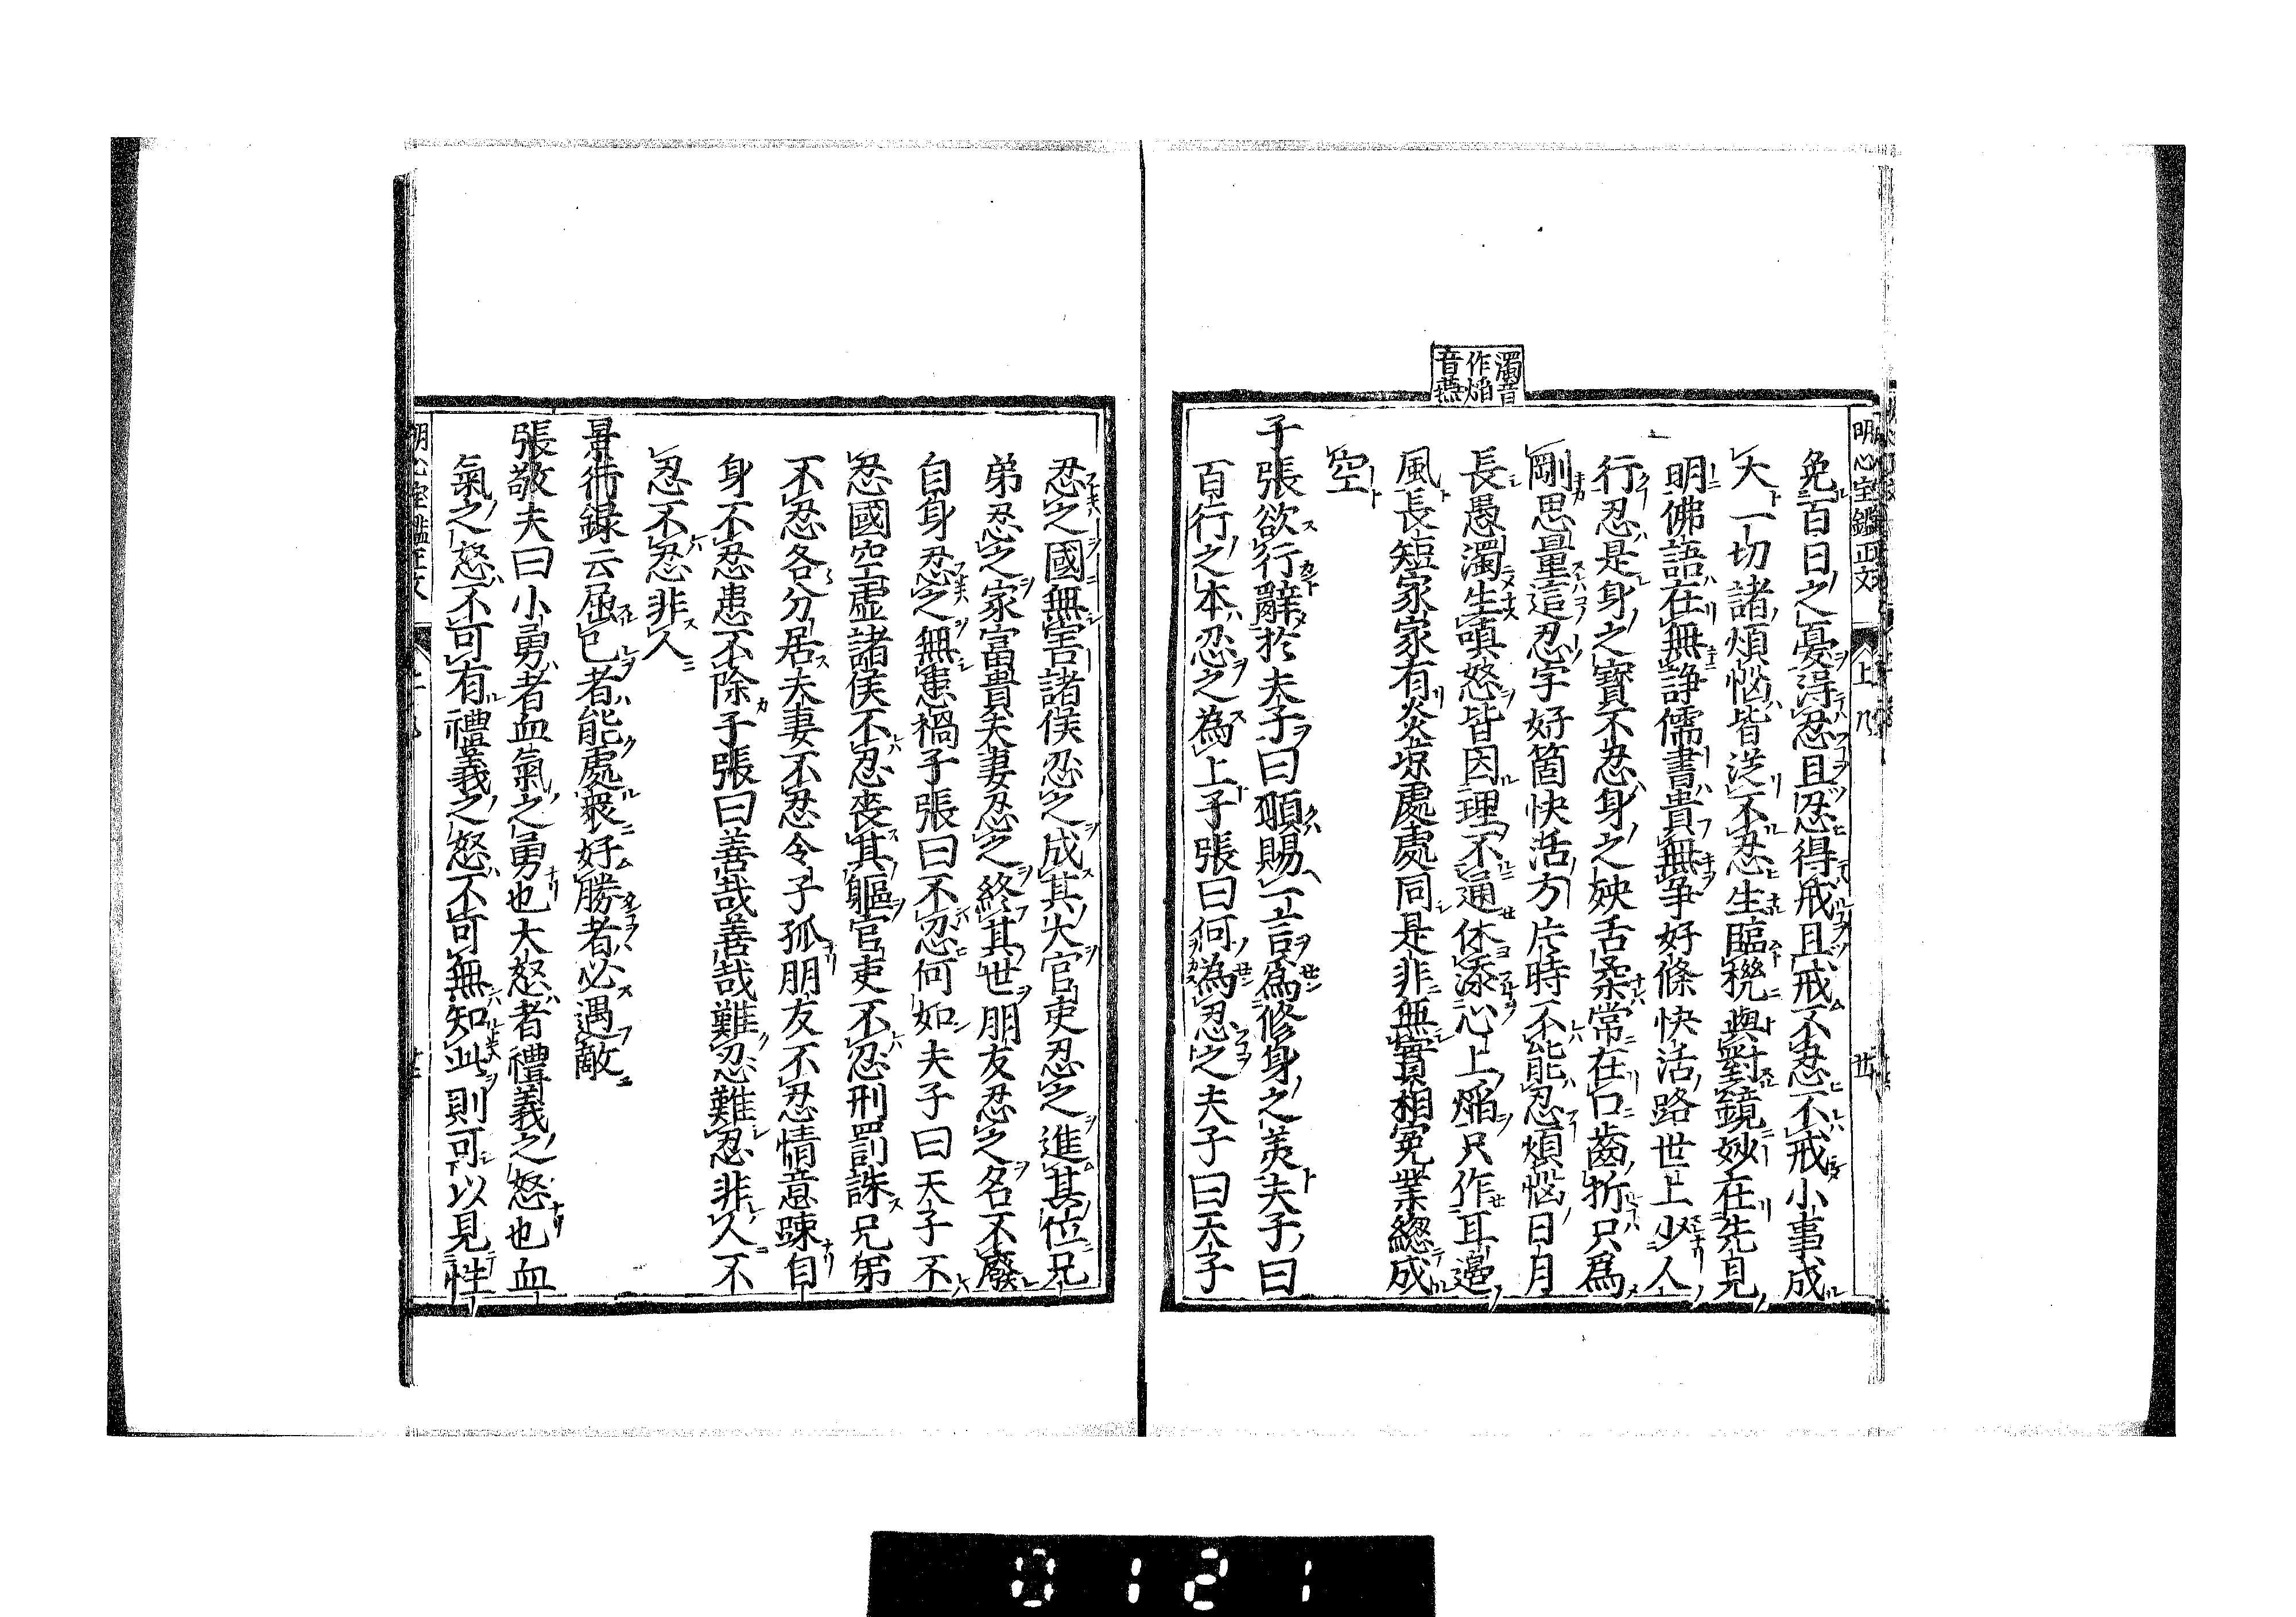 明心宝鑑正文 上 八 廿
免百日之憂得忍且忍得戒且戒不忍不戒小事成
大一切諸煩惱皆從不忍生臨機與對鏡妙在先見
明佛語在無諍儒書貴無爭好條快活路世上少人
行忍是身之寶不忍身之殃舌柔常在口齒折只爲
剛思量這忍字好箇快活方片時不能忍煩惱日月
長愚濁生嗔怒皆因理不通休添心上焔只作耳邉
風長短家家有炎凉處處同是非無實相寃業緫成
空
濁音
作焔
音燕
子張欲行辭於夫子曰願賜一言爲修身之美夫子曰
百行之本忍之為上子張曰何為忍之夫子曰天子
忍之國無害諸侯忍之成其大官吏忍之進其位兄
弟忍之家富貴夫妻忍之終其世朋友忍之名不廢
自身忍之無患禍子張曰不忍何如夫子曰天子不
忍國空虚諸侯不忍喪其軀官吏不忍刑罰誅兄弟
不忍各分居夫妻不忍令子孤朋友不忍情意踈自
身不忍患不除子張曰善哉善哉難忍難忍非人不
忍不忍非人
景行録云屈己者能處衆好勝者必遇敵
張敬夫曰小勇者血氣之勇也大怒者禮義之怒也血
氣之怒不可有禮義之怒不可無知此則可以見性
0121